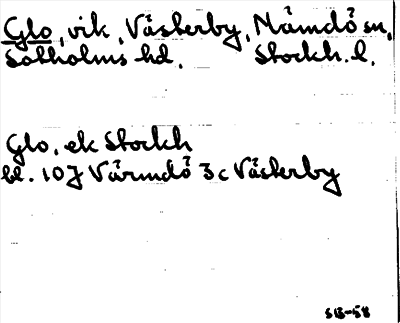 Glo, vik, Västerby, Nämdö sn,
Sotholms hd, Stockh. l.
Glo, ek Stockh
bl. 10J Värmdö 3c Västerby
SIB-58